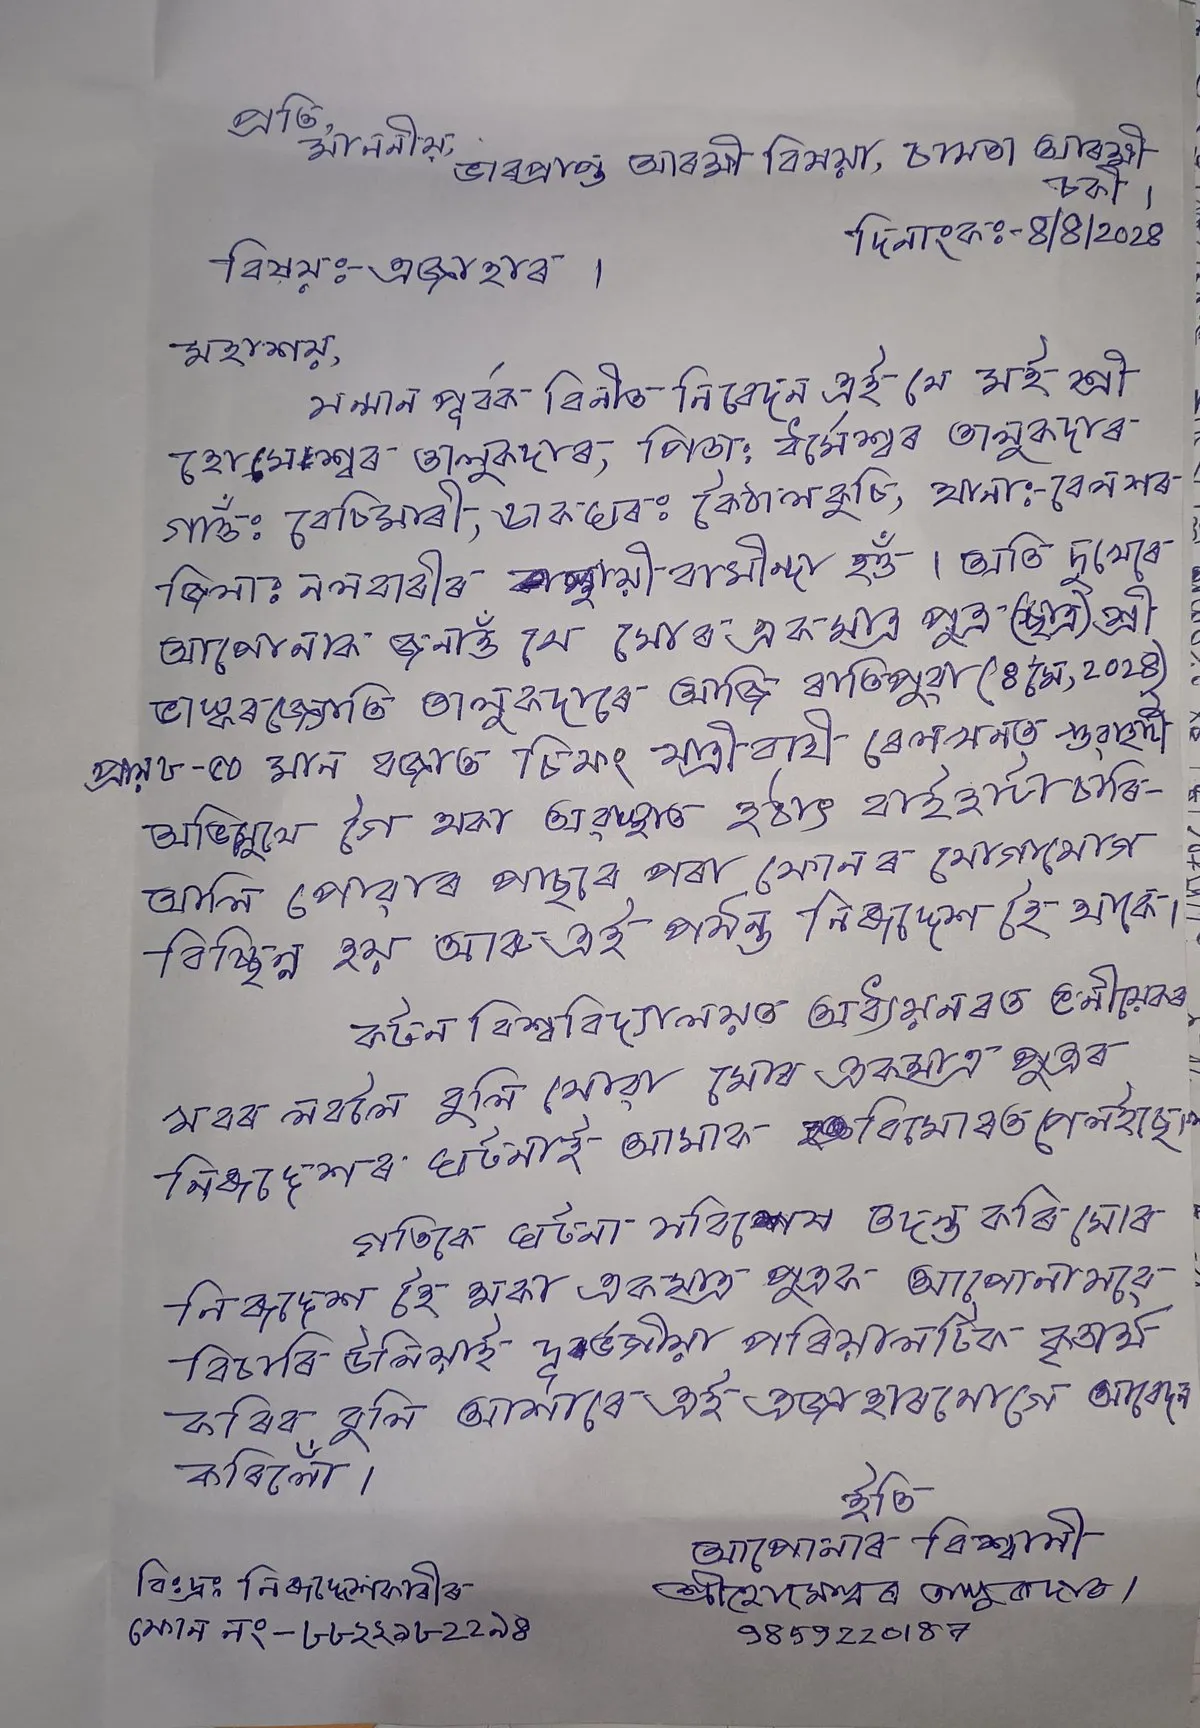 প্ৰতি,
মাননীয়,
ভাৰপ্ৰাপ্ত আৰক্ষী বিষয়া, চামতা আৰক্ষী
চকী।
দিনাংকঃ- 8/8/2028
বিষয়ঃ- এজাহাৰ ।
মহাশয়,
সন্মান পূৰ্বক বিনীত নিবেদন এই যে মই শ্ৰী
হোমেশ্বৰ তালুকদাৰ, পিতাঃ ধৰ্মেশ্বৰ তালুকদাৰ
গাওঁঃ বেচিমাৰী, ডাকঘৰঃ কৈঠালকুচি, থানাঃ- বেলশৰ
জিলাঃ নলবাৰীৰ স্থায়ী বাসীন্দা হওঁ । অতি দুখেৰে
আপোনাক জনাওঁ যে মোৰ একমাত্ৰ পুত্ৰ (ছাত্ৰ) শ্ৰী
ভাস্কৰজ্যোতি তালুকদাৰে আজি ৰাতিপুৱা (৪ মে, 2028)
প্ৰায় ৮-৫০ মান বজাত চিমাং যাত্ৰীবাহী ৰেলযানত গুৱাহাটী
অভিমুখে গৈ থকা অৱস্থাত হঠাৎ বাইহাটা চাৰি-
আলি পোৱাৰ পাছৰে পৰা ফোনৰ যোগাযোগ
বিচ্ছিন্ন হয় আৰু এই পৰ্যন্ত নিৰুদ্দেশ হৈ থাকে।
কটন বিশ্ববিদ্যালয়ত অধ্যয়নৰত
খবৰ লবলৈ বুলি যোৱা মোৰ একমাত্ৰ পুত্ৰৰ
নিৰুদ্দেশৰ ঘটনাই আমাক বিমোৰত পেলাইছে।
গতিকে ঘটনা সবিশেষ তদন্ত কৰি মোৰ
নিৰুদ্দেশ হৈ থকা একমাত্ৰ পুত্ৰক আপোনাসৱে
বিচাৰি উলিয়াই দূৰ্ভগীয়া পৰিয়ালটিক কৃতাৰ্থ
কৰিব বুলি আশাৰে এই এজাহাৰযোগে আবেদন
কৰিলোঁ ।
ইতি
আপোনাৰ বিশ্বাসী
শ্ৰী হোমেশ্বৰ তালুকদাৰ।
9859220187
বিঃদ্ৰঃ নিৰুদ্দেশকাৰীৰ
ফোন নং - ৮৮২২৯৮22৯8